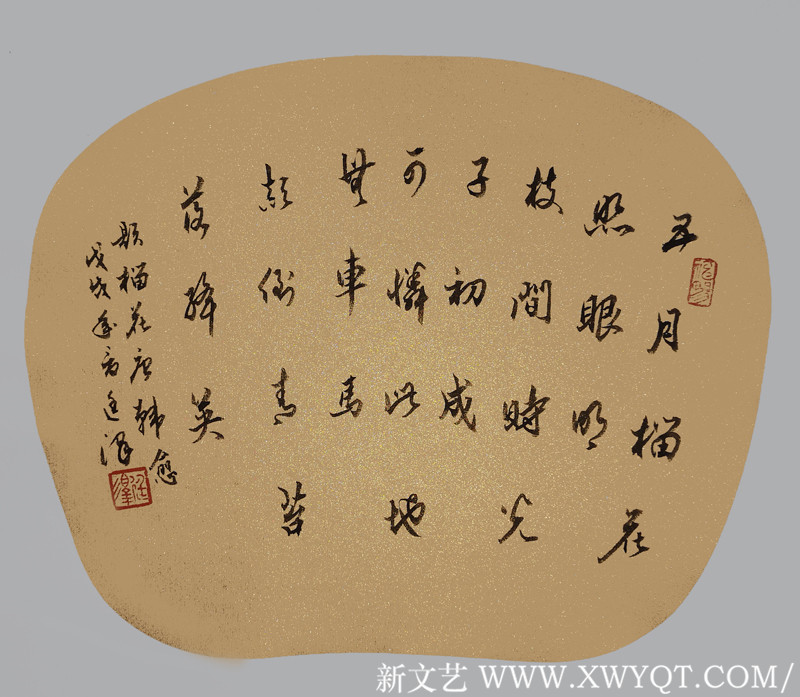 五月榴花
照眼明
枝間時見
子初成
可憐此地
無車馬
顛倒青苔
落絳英
題榴花唐韓愈
戊戌年
新文艺 WWW.XWYQT.COM/